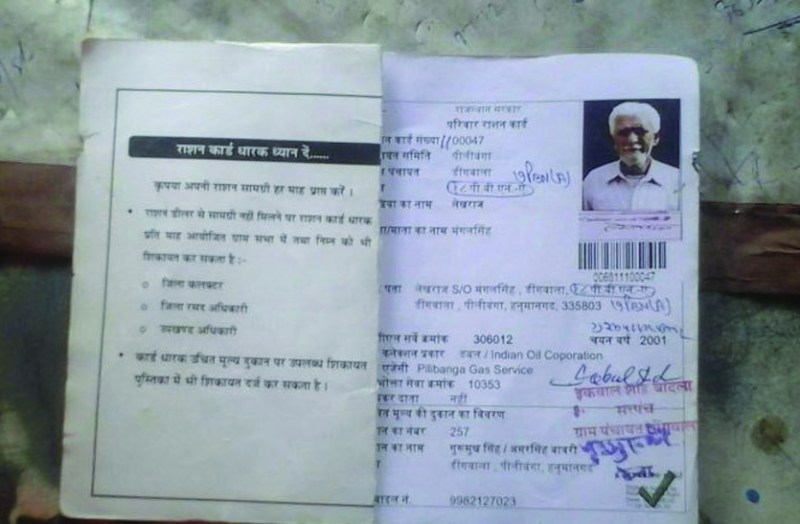 राशन कार्ड धारक ध्यान दें.....
कृपया अपनी राशन सामग्री हर माह प्राप्त करें ।
• राशन डीलर से सामग्री नहीं मिलने पर राशन कार्ड धारक
प्रति माह आयोजित ग्राम सभा में तथा निम्न को भी
शिकायत कर सकता है :-
जिला कलक्टर
जिला रसद अधिकारी
उपखण्ड अधिकारी
• कार्ड धारक उचित मूल्य दुकान पर उपलब्ध शिकायत
पुस्तिका में भी शिकायत दर्ज कर सकता है ।
राजस्थान सरकार
परिवार राशन कार्ड
कार्ड संख्या 00047
समिति पीलीबंगा
डींगवाला
का नाम लेखराज
/माता का नाम मंगलसिंह
006811100047
पता लेखराज S/O मंगलसिंह , डींगवाला,
डींगवाला , पीलीबंगा, हनुमानगढ, 335803
सर्वे क्रमांक 306012 चयन वर्ष 2001
कनेक्शन प्रकार डबल / Indian Oil Coporation
एजेंसी Pilibanga Gas Service
सेवा क्रमांक 10353
दाता नहीं
मूल्य की दुकान का विवरण
का नंबर 257
का नाम गुरुमुख सिंह / अमरसिंह बावरी
डींगवाला , पीलीबंगा, हनुमानगढ
नं. 9982127023
सरपंच
ग्राम पंचायत